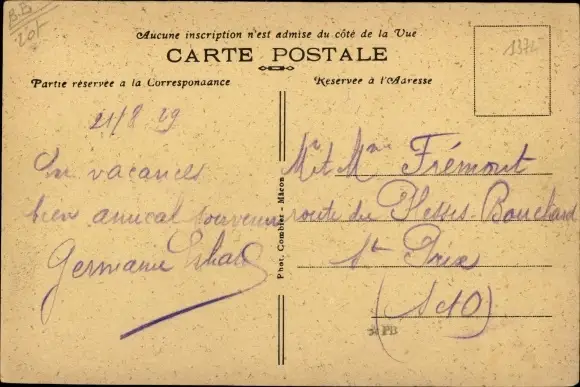 B.B
20f
Aucune inscription n'est admise du côté de la Vue
CARTE POSTALE
Partie réservée a la Correspondance
Réservée à l'Adresse
1374
21/8 29
En vacances
bien amical souvenir
Germaine
Phot. Combier - Mâcon
Mr et Mme Frémont
route du Plessis-Bouchard
St Prix
(S et O)
PB